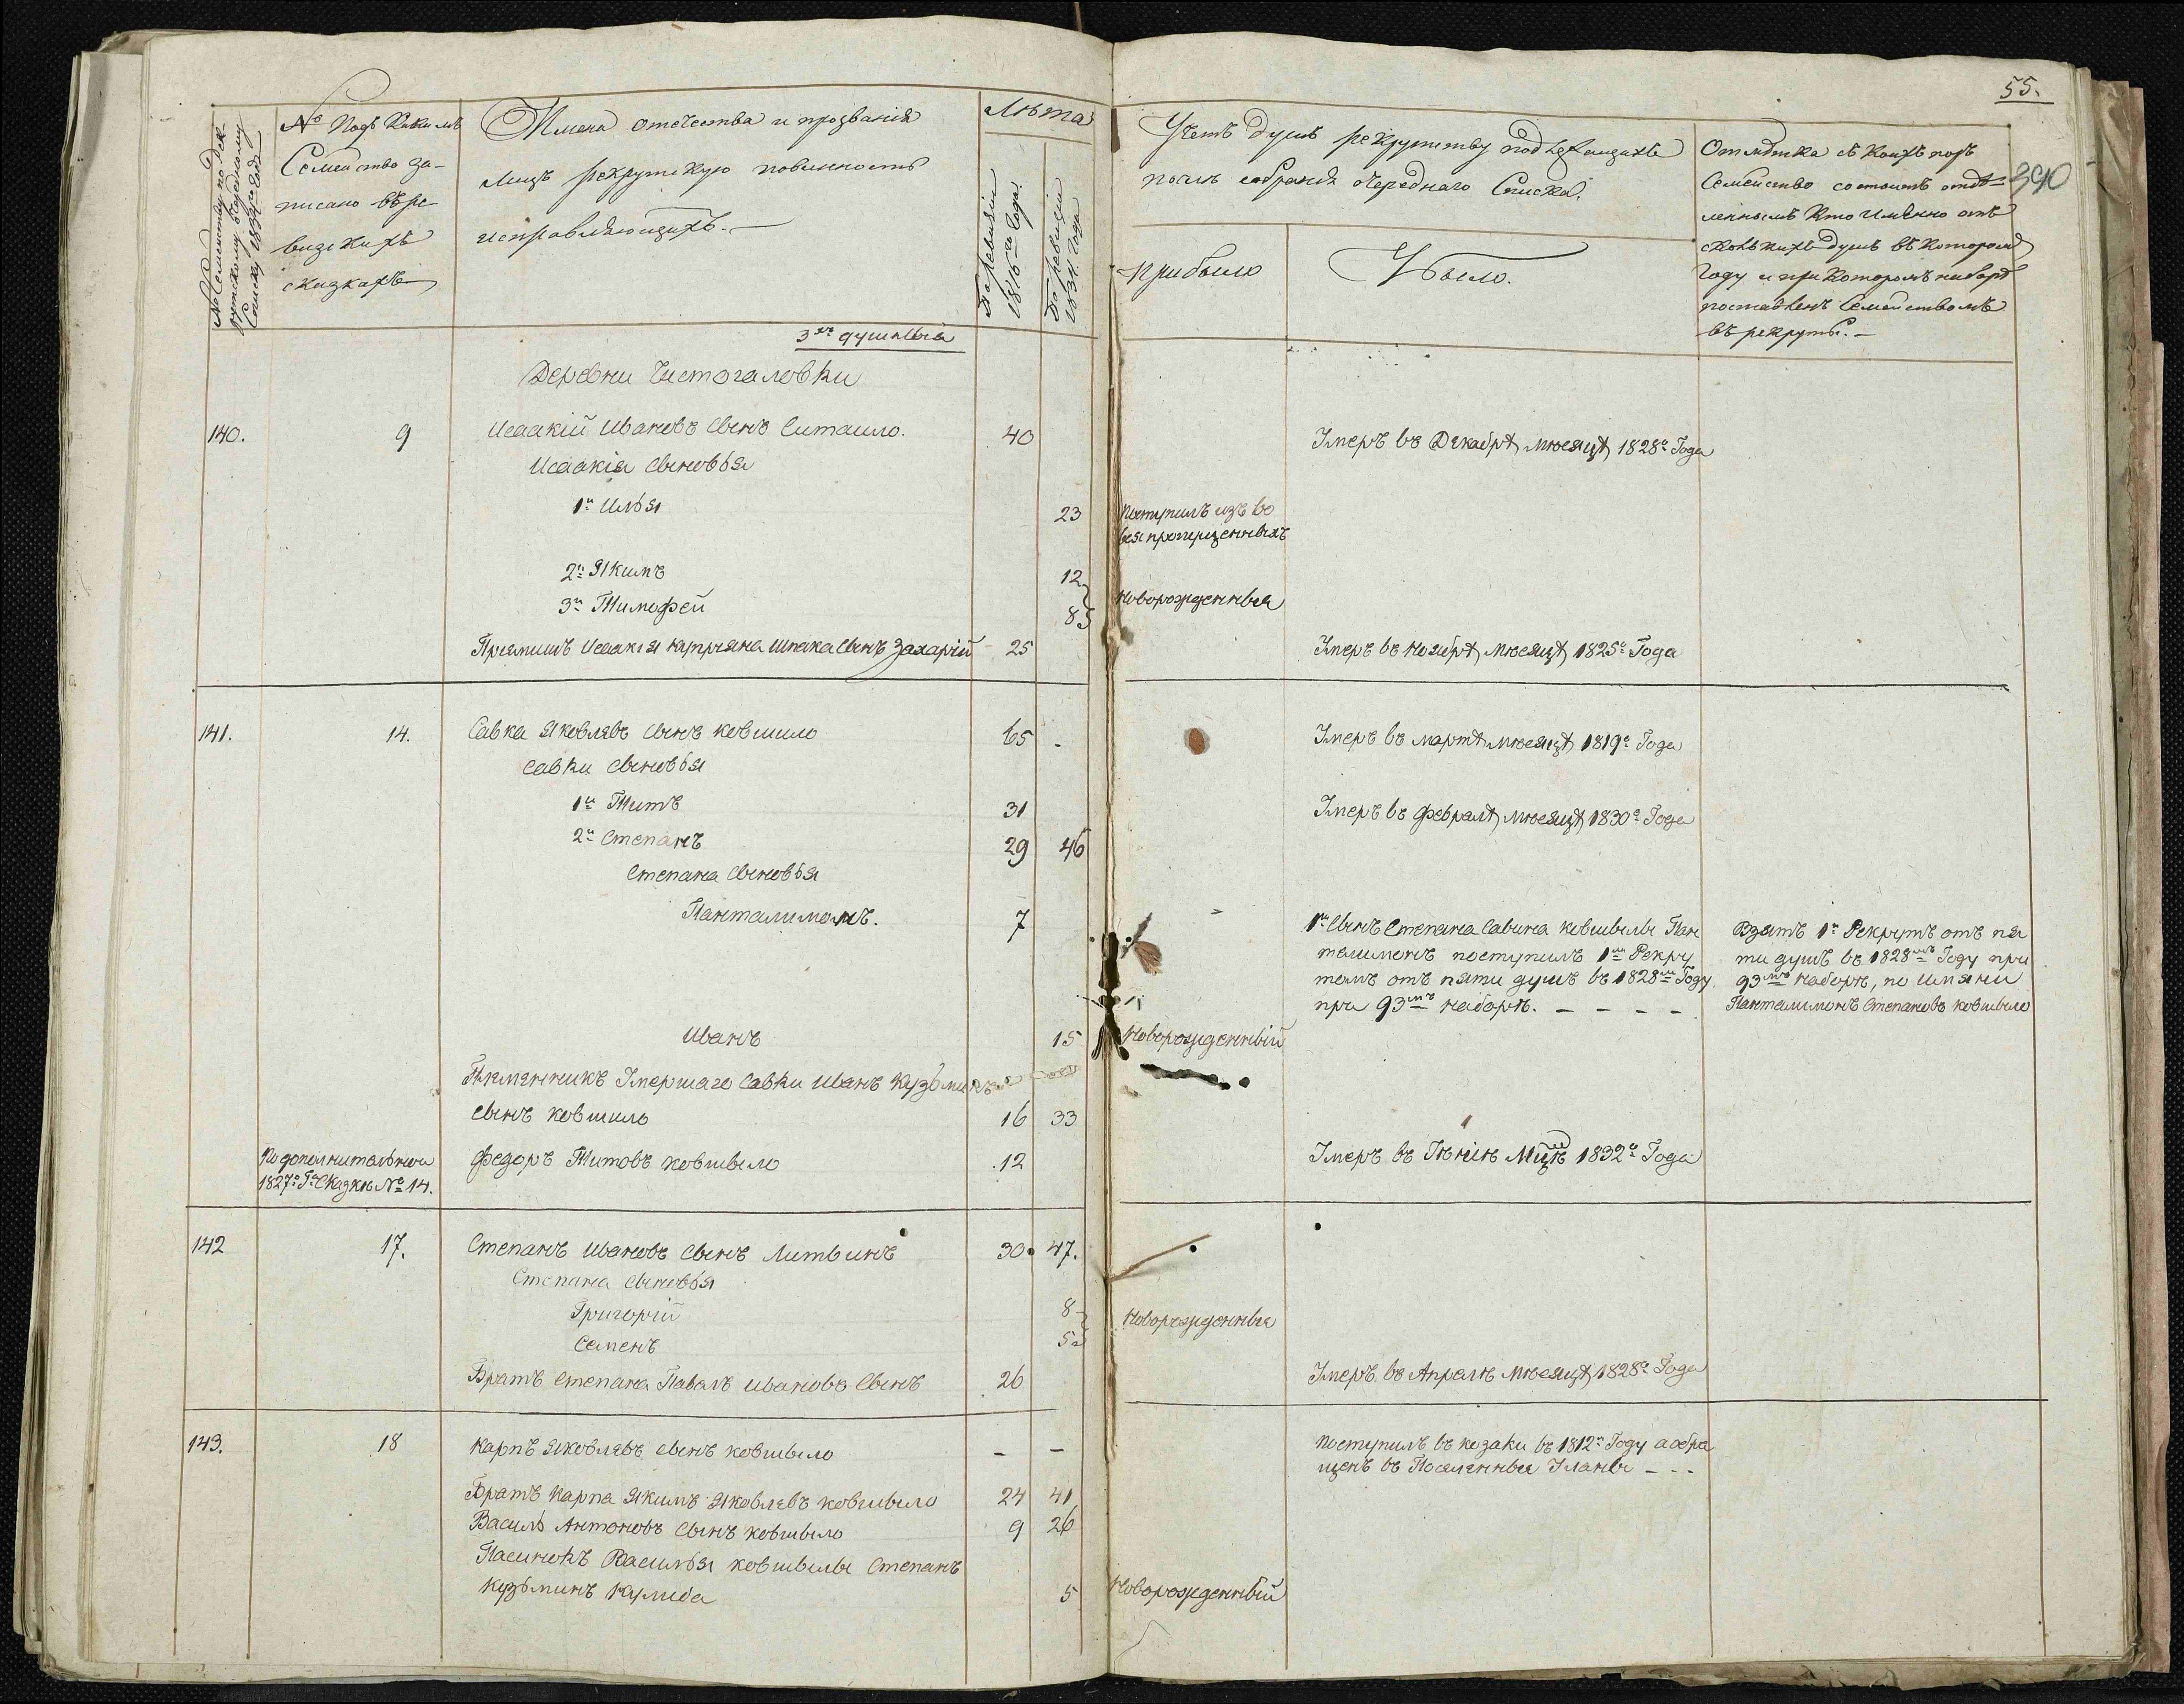 55.
390
№ Семейству по рек-
рутскому очередному
Списку 1834го года
№ Подъ какимъ
Семейство за-
писано въ ре-
визскихъ
сказкахъ
Имена отечества и прозванія
лицъ рекрутскую повинность
исправляющихъ. —
Лѣта
По ревизіи
1816го года.
По ревизіи
1834 года
Учетъ душъ рекрутству подлежащихъ
послѣ собранія очереднаго Списка.
прибыло
Убыло.
Отмѣтка съ коихъ поръ
Семейство состоитъ отдѣ-
леннымъ кто имѣнно отъ
сколькихъ душъ въ которомъ
году и при которомъ наборѣ
поставленъ Семействомъ
въ рекруты. —
3хъ душныя
Деревни Чистогаловки
140. 9 Исаакій Ивановъ сынъ Ситаило. 40 Умеръ въ Декабрѣ мѣсяцѣ 1828го Года
Исаакія сыновья
1й Илья 23 Поступилъ изъ во
вся пропущенныхъ
2й Якимъ 12
3й Тимофей 8 Новорожденныя
Пріямишъ Исаакія Купріяна Шпака сынъ Захарій 25 Умеръ въ Ноябрѣ мѣсяцѣ 1825го Года
141. 14. Савка Яковлевъ сынъ ковшило 65 - Умеръ въ мартѣ мѣсяцѣ 1819го Года
Савки сыновья
1й Титъ 31 Умеръ въ Февралѣ мѣсяцѣ 1830го Года
2й Степанъ 29 46
Степана сыновья
Панталимонъ. 7 1й Сынъ Степана Савина ковшылы Пан Взятъ 1й Рекрутъ отъ пя
талимонъ поступилъ 1мъ Рекру ти душъ въ 1828мъ Году при
томъ отъ пяти душъ въ 1828мъ Году. 93мъ наборѣ, по имяни
при 93мъ наборѣ. - - - - Панталимонъ Степановъ ковшыло
Иванъ 15 Новорожденный
Племянникъ Умершаго Савки Иванъ Кузьминъ
сынъ ковшило 16 33
По дополнительной Федоръ Титовъ ковшыло 12 Умеръ въ Іюнѣ Мцѣ 1832го Года
1827го Гда Сказкѣ № 14.
142 17. Степанъ Ивановъ сынъ Литвинъ 30 47.
Степана сыновья
Григорій 8 Новорожденныя
Семенъ 5
Братъ Степана Павелъ Ивановъ Сынъ 26 Умеръ въ Апрелѣ мѣсяцѣ 1828го Года
143. 18 Карпъ Яковлевъ сынъ ковшыло - - Поступилъ въ козаки въ 1812мъ Году а обра
щенъ въ Поселенные Уланы - - -
Братъ Карпа Якимъ Яковлевъ ковшыло 24 41
Василь Антоновъ сынъ ковшыло 9 26
Пасинокъ Василья ковшылы Степанъ
Кузьминъ Кулиба 5 Новорожденный